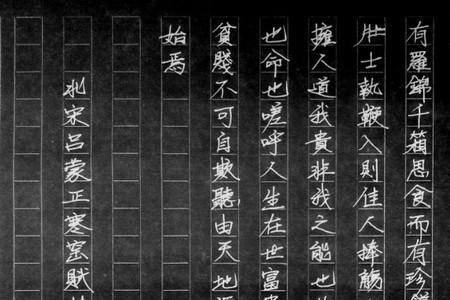 有羅錦千箱思食而有珍
壯士執鞭入則佳人捧觴
擁人道我貴非我之能也
也命也嗟呼人生在世富
貧賤不可自欺聽由天地
始焉
北宋呂蒙正寒窑賦